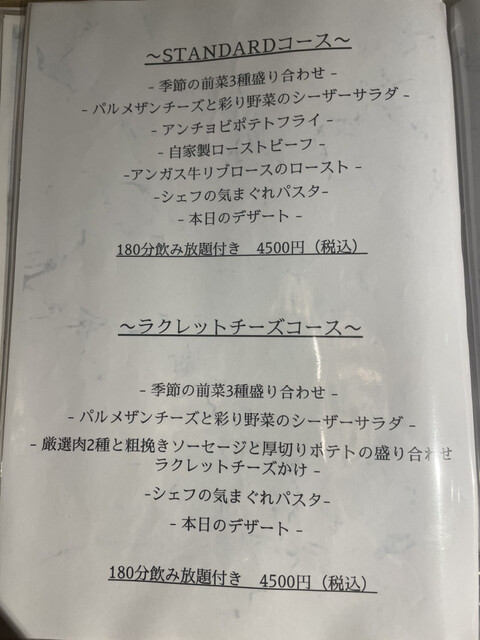 ～STANDARDコース～
- 季節の前菜3種盛り合わせ -
- パルメザンチーズと彩り野菜のシーザーサラダ -
- アンチョビポテトフライ -
- 自家製ローストビーフ -
-アンガス牛リブロースのロースト -
-シェフの気まぐれパスタ-
- 本日のデザート -
180分飲み放題付き　4500円（税込）
～ラクレットチーズコース～
- 季節の前菜3種盛り合わせ -
- パルメザンチーズと彩り野菜のシーザーサラダ -
- 厳選肉2種と粗挽きソーセージと厚切りポテトの盛り合わせ
ラクレットチーズかけ -
-シェフの気まぐれパスタ-
- 本日のデザート -
180分飲み放題付き　4500円（税込）